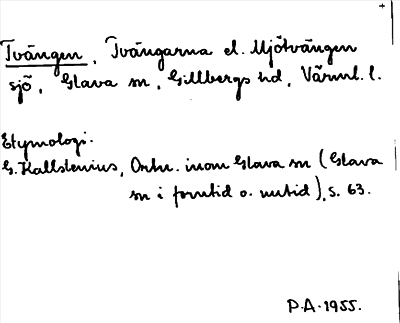 Tvängen, Tvängarna el. Mjötvängen
sjö, Glava sn, Gillbergs hd, Värml. l.
Etymologi.
G. Kallstenius, Ortn. inom Glava sn (Glava
sn i forntid o. nutid), s. 63.
P.A. 1955.